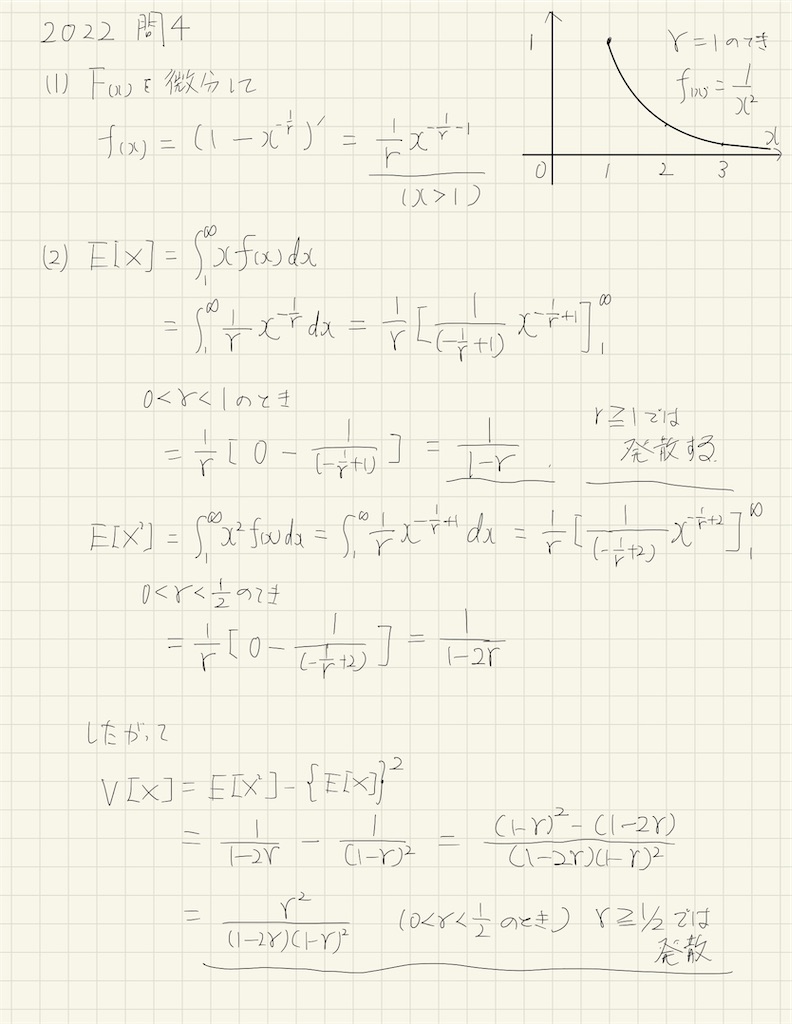 2022 問4
(1) F(x)を微分して
f(x) = (1 - x^{-1/r})′ = 1/r x^{-1/r-1}
(x>1)
1
r=1のとき
f(x)=1/x²
x
0 1 2 3
(2) E[X] = ∫₁^∞ x f(x) dx
= ∫₁^∞ 1/r x^{-1/r} dx = 1/r [ 1/(-1/r+1) x^{-1/r+1} ]₁^∞
0<r<1のとき
= 1/r [ 0 - 1/(-1/r+1) ] = 1/(1-r) .
r≧1では
発散する
E[X²] = ∫₁^∞ x² f(x) dx = ∫₁^∞ 1/r x^{-1/r+1} dx = 1/r [ 1/(-1/r+2) x^{-1/r+2} ]₁^∞
0<r<1/2のとき
= 1/r [ 0 - 1/(-1/r+2) ] = 1/(1-2r)
したがって
V[X] = E[X²] - {E[X]}²
= 1/(1-2r) - 1/(1-r)² = ((1-r)² - (1-2r))/((1-2r)(1-r)²)
= r²/((1-2r)(1-r)²) (0<r<1/2のとき) r≧1/2では
発散